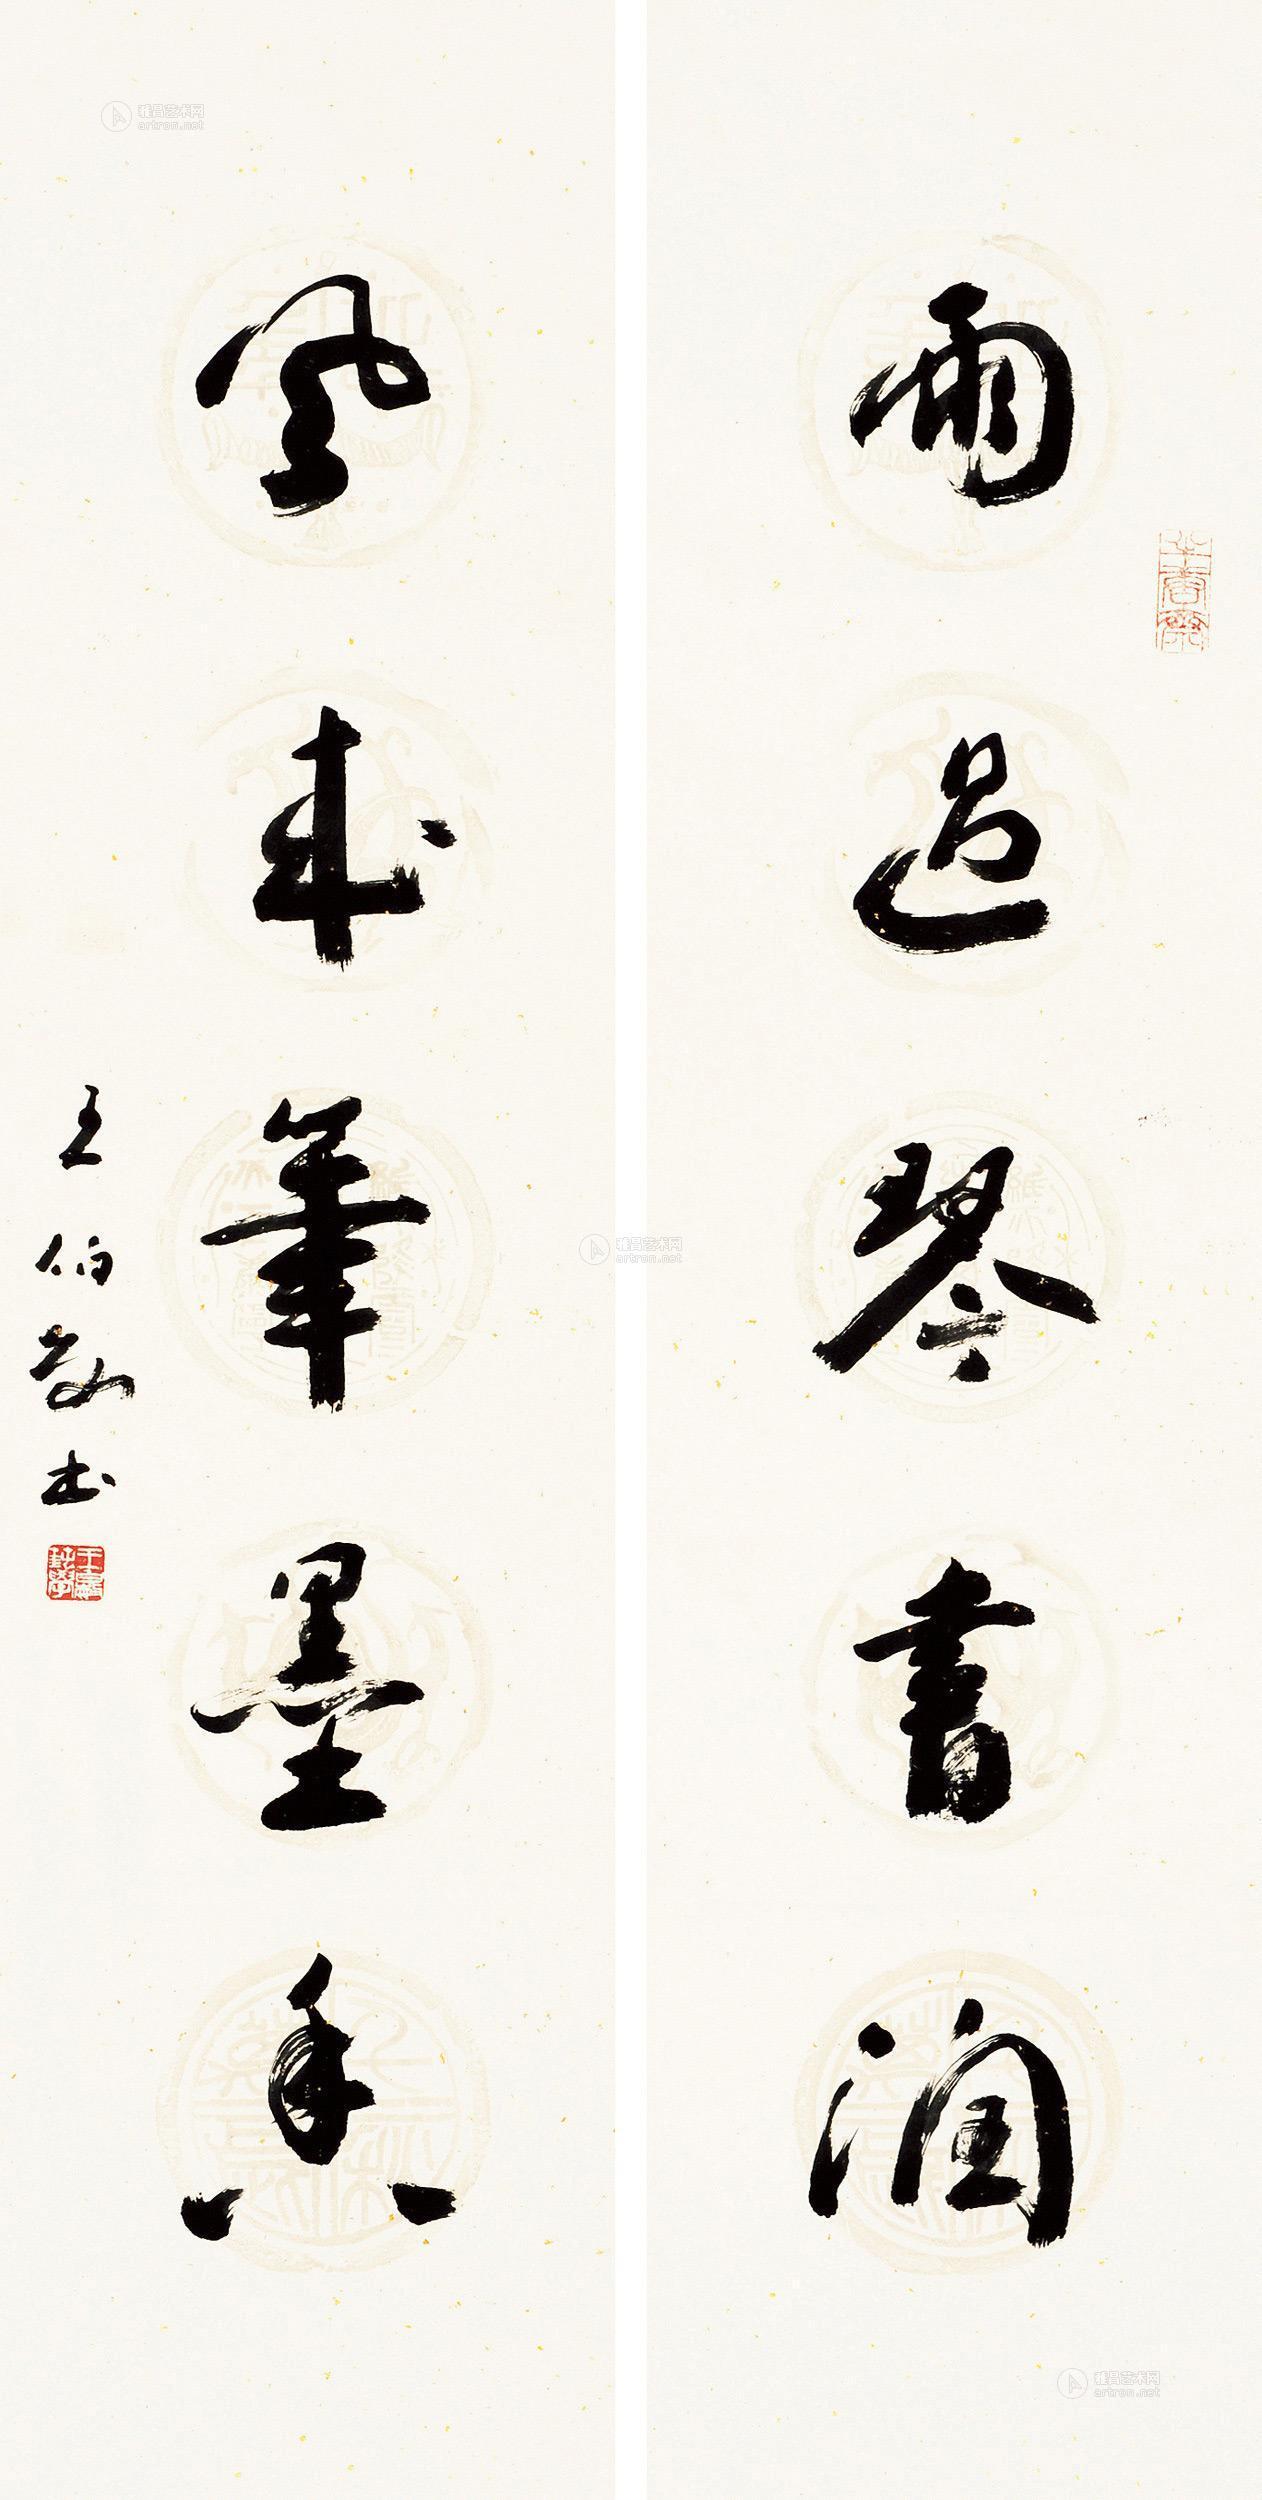 雨過琴書潤
風來筆墨香
王伯敏书
半唐齋
雅昌艺术网
artron.net
雅昌艺术网
artron.net
雅昌艺术网
artron.net